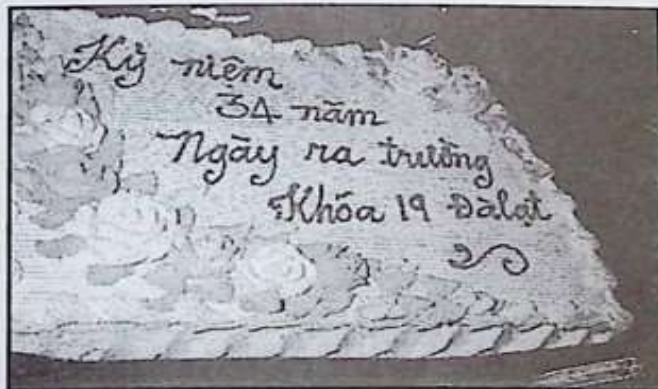 Kỷ niệm
34 năm
Ngày ra trường
Khóa 19 Đàlạt